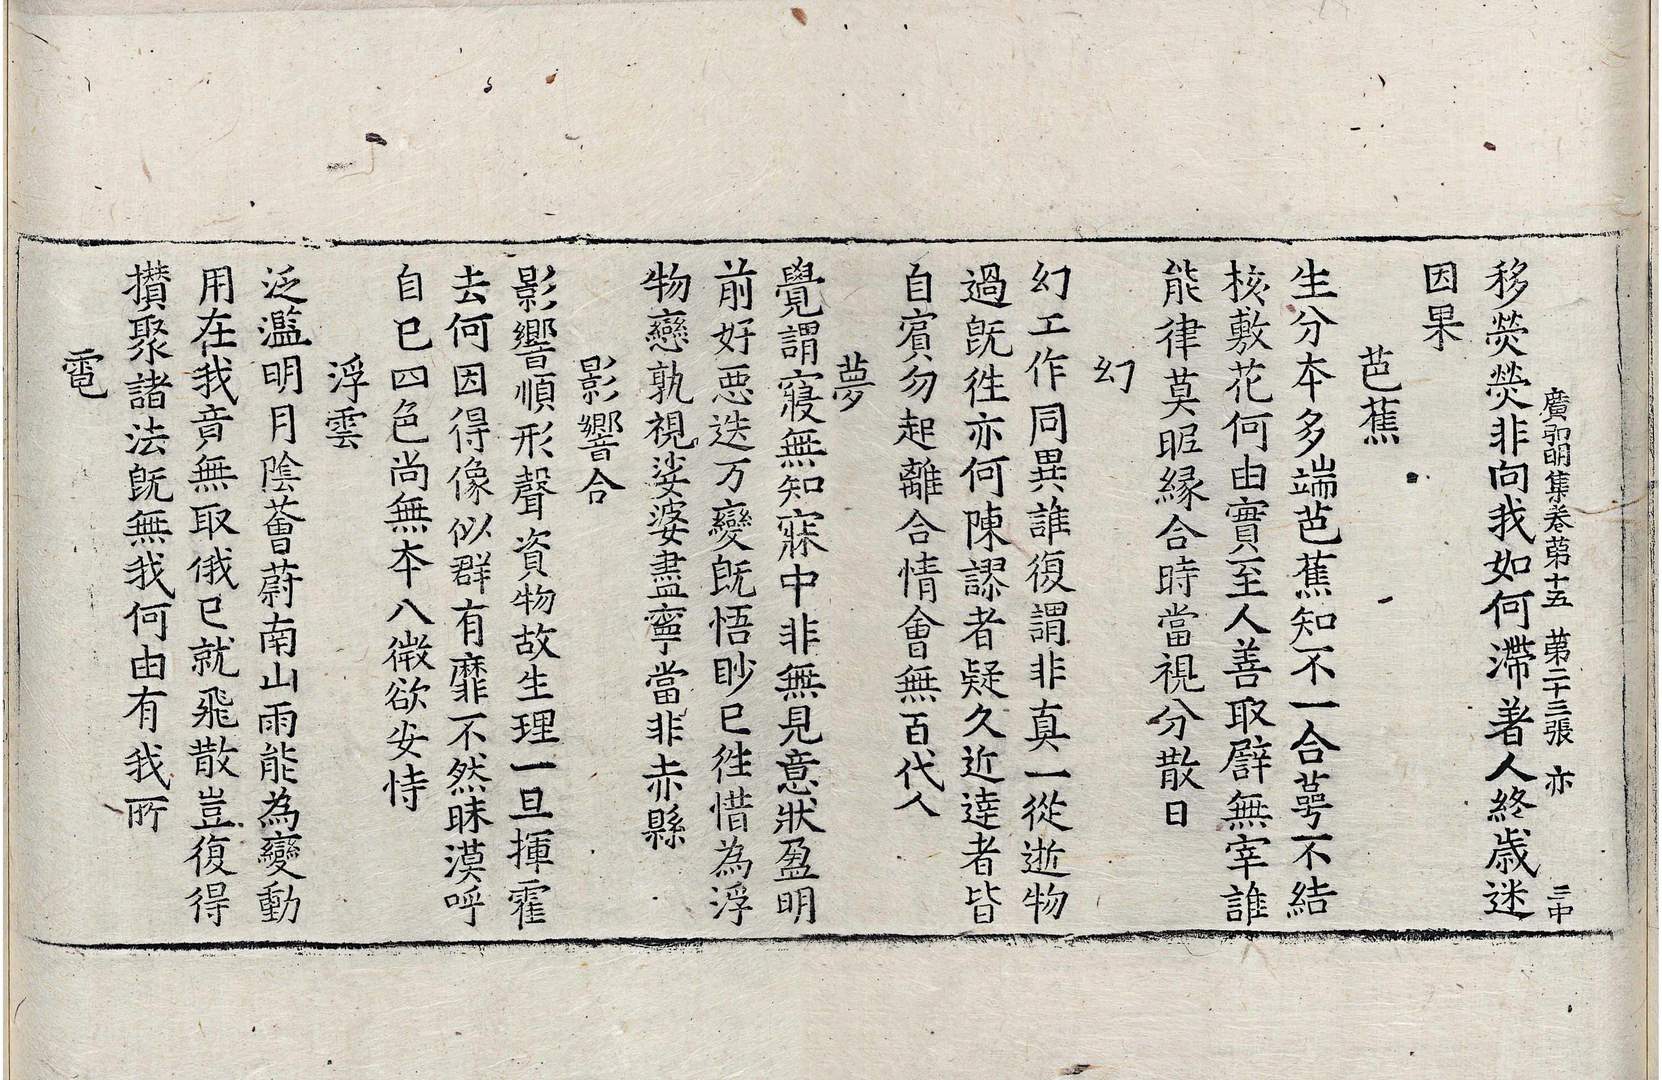 廣弘明集卷苐十五　苐二十三張　亦　三中
移熒熒非向我如何滯著人終歲迷
因果
芭蕉
生分本多端芭蕉知不一合萼不結
核敷花何由實至人善取譬無宰誰
能律莫昵緣合時當視分散日
幻
幻工作同異誰復謂非真一從逝物
過既徃亦何陳謬者疑久近達者皆
自賓勿起離合情會無百代人
夢
覺謂寢無知寐中非無見意狀盈明
前好惡迭万變既悟眇已徃惜為浮
物戀孰視娑婆盡寧當非赤縣
影響合
影響順形聲資物故生理一旦揮霍
去何因得像似群有靡不然昧漠呼
自已四色尚無本八微欲安恃
浮雲
泛濫明月陰薈蔚南山雨能為變動
用在我竟無取俄已就飛散豈復得
攢聚諸法既無我何由有我所
電